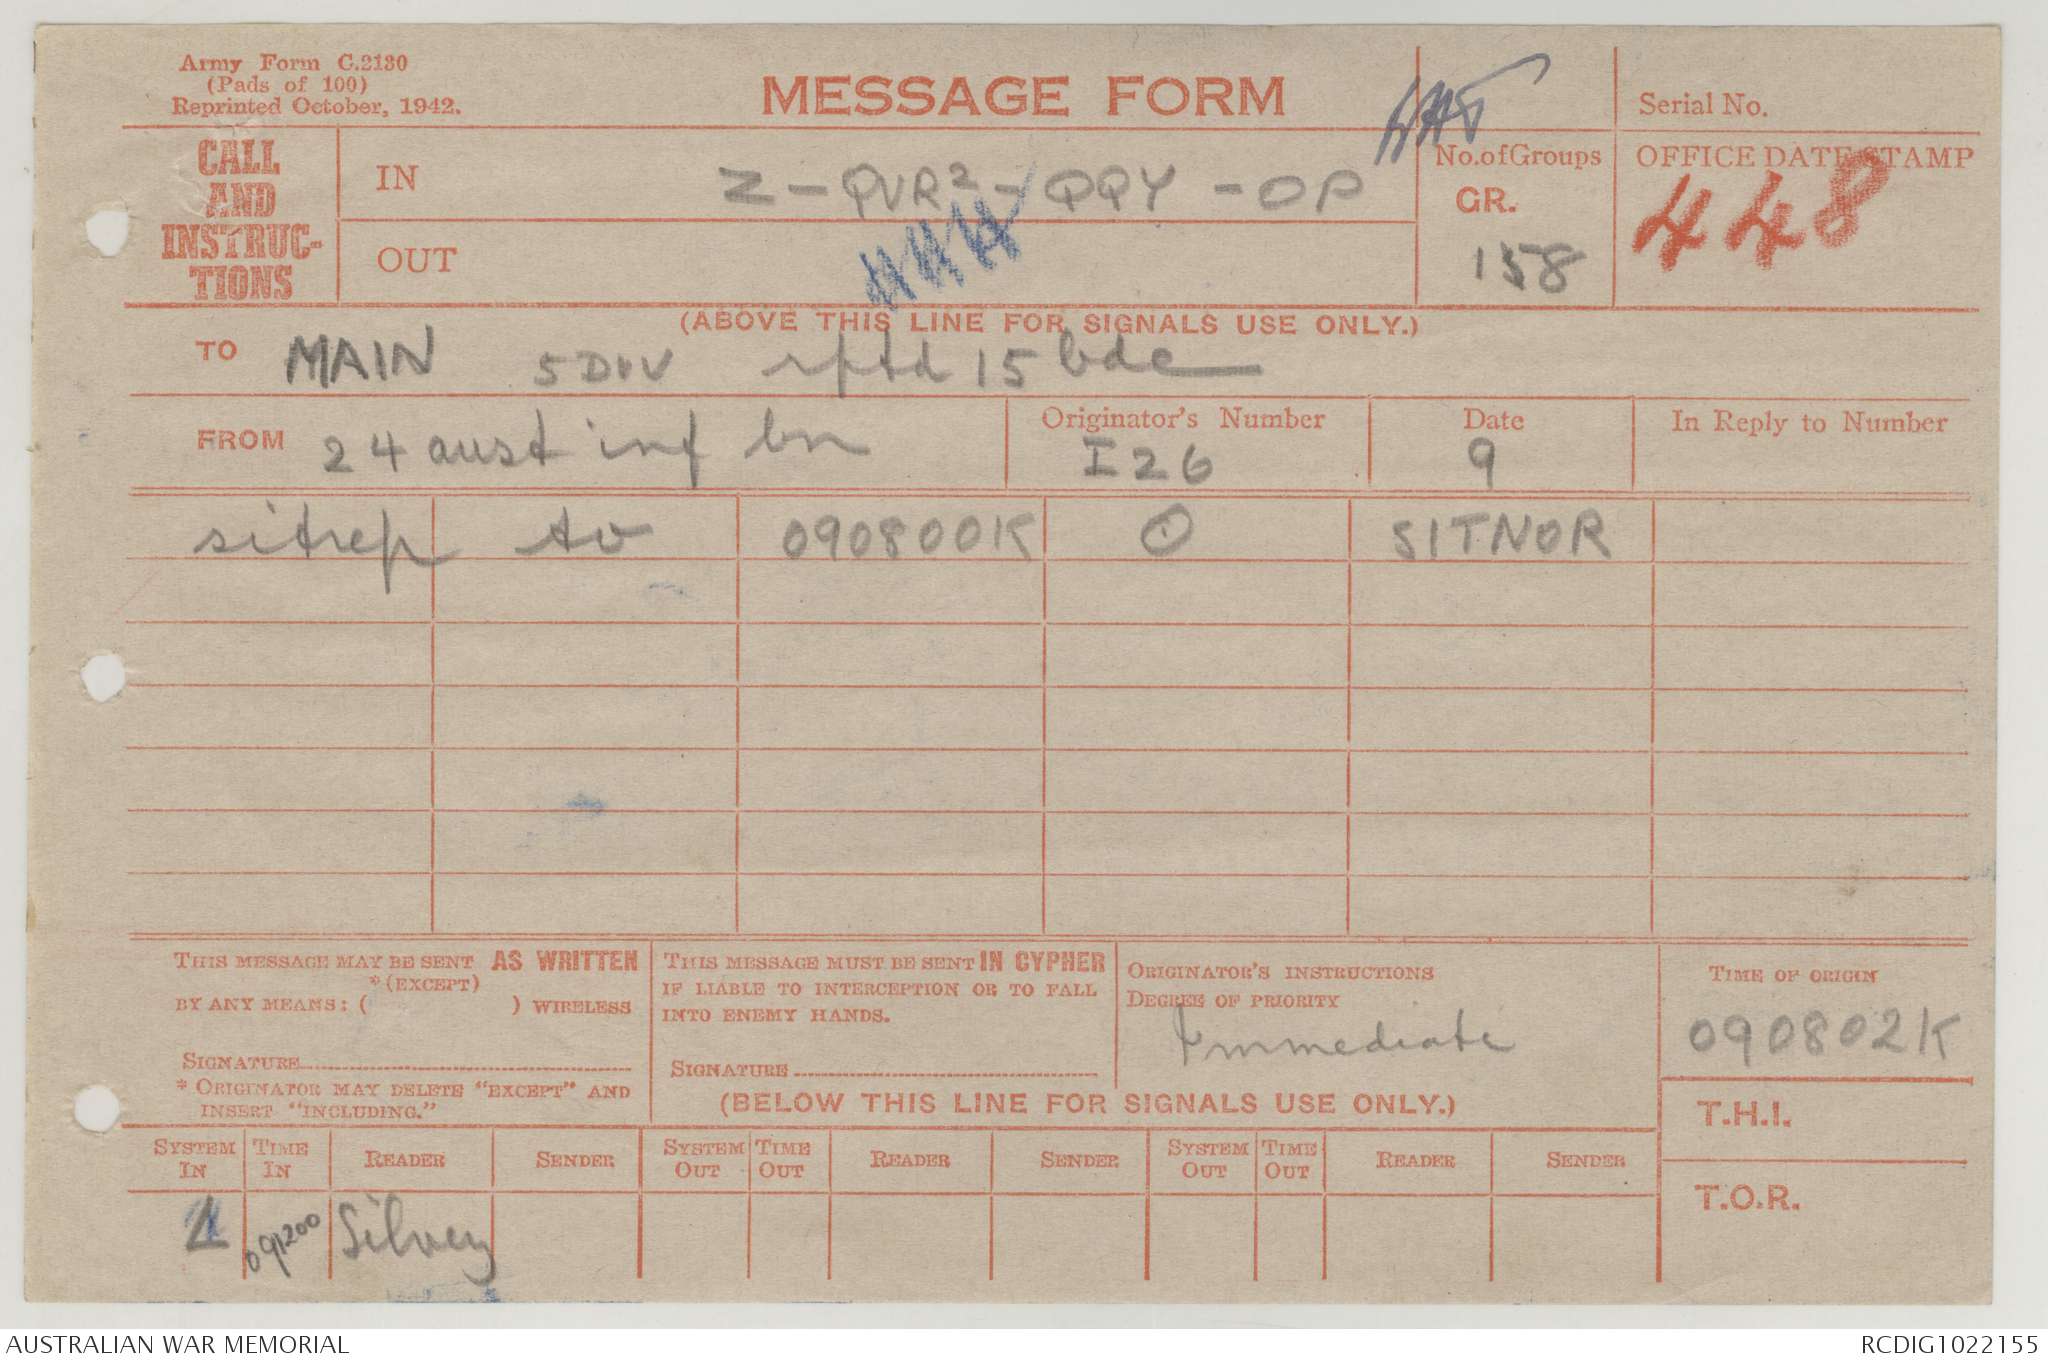 Army Form C.2130
(Pads of 100)
Reprinted October, 1942.
MESSAGE FORM
Serial No.
CALL AND INSTRUC-TIONS
IN
Z - QVR2 - QQY - OP
No. of Groups
GR.
158
OFFICE DATE STAMP
448
OUT
(ABOVE THIS LINE FOR SIGNALS USE ONLY.)
TO MAIN 5 DIV rptd 15 bde
FROM 24 aust inf bn
Originator's Number
I26
Date
9
In Reply to Number
sitrep to 090800K ⊙ SITNOR
THIS MESSAGE MAY BE SENT AS WRITTEN
*(EXCEPT)
BY ANY MEANS: ( ) WIRELESS
SIGNATURE
* ORIGINATOR MAY DELETE "EXCEPT" AND
INSERT "INCLUDING."
THIS MESSAGE MUST BE SENT IN CYPHER
IF LIABLE TO INTERCEPTION OR TO FALL
INTO ENEMY HANDS.
SIGNATURE
ORIGINATOR'S INSTRUCTIONS
DEGREE OF PRIORITY
Immediate
TIME OF ORIGIN
090802K
(BELOW THIS LINE FOR SIGNALS USE ONLY.)
T.H.I.
T.O.R.
SYSTEM IN TIME IN READER SENDER SYSTEM OUT TIME OUT READER SENDER SYSTEM OUT TIME OUT READER SENDER
L 091200 Silvey
AUSTRALIAN WAR MEMORIAL
RCDIG1022155